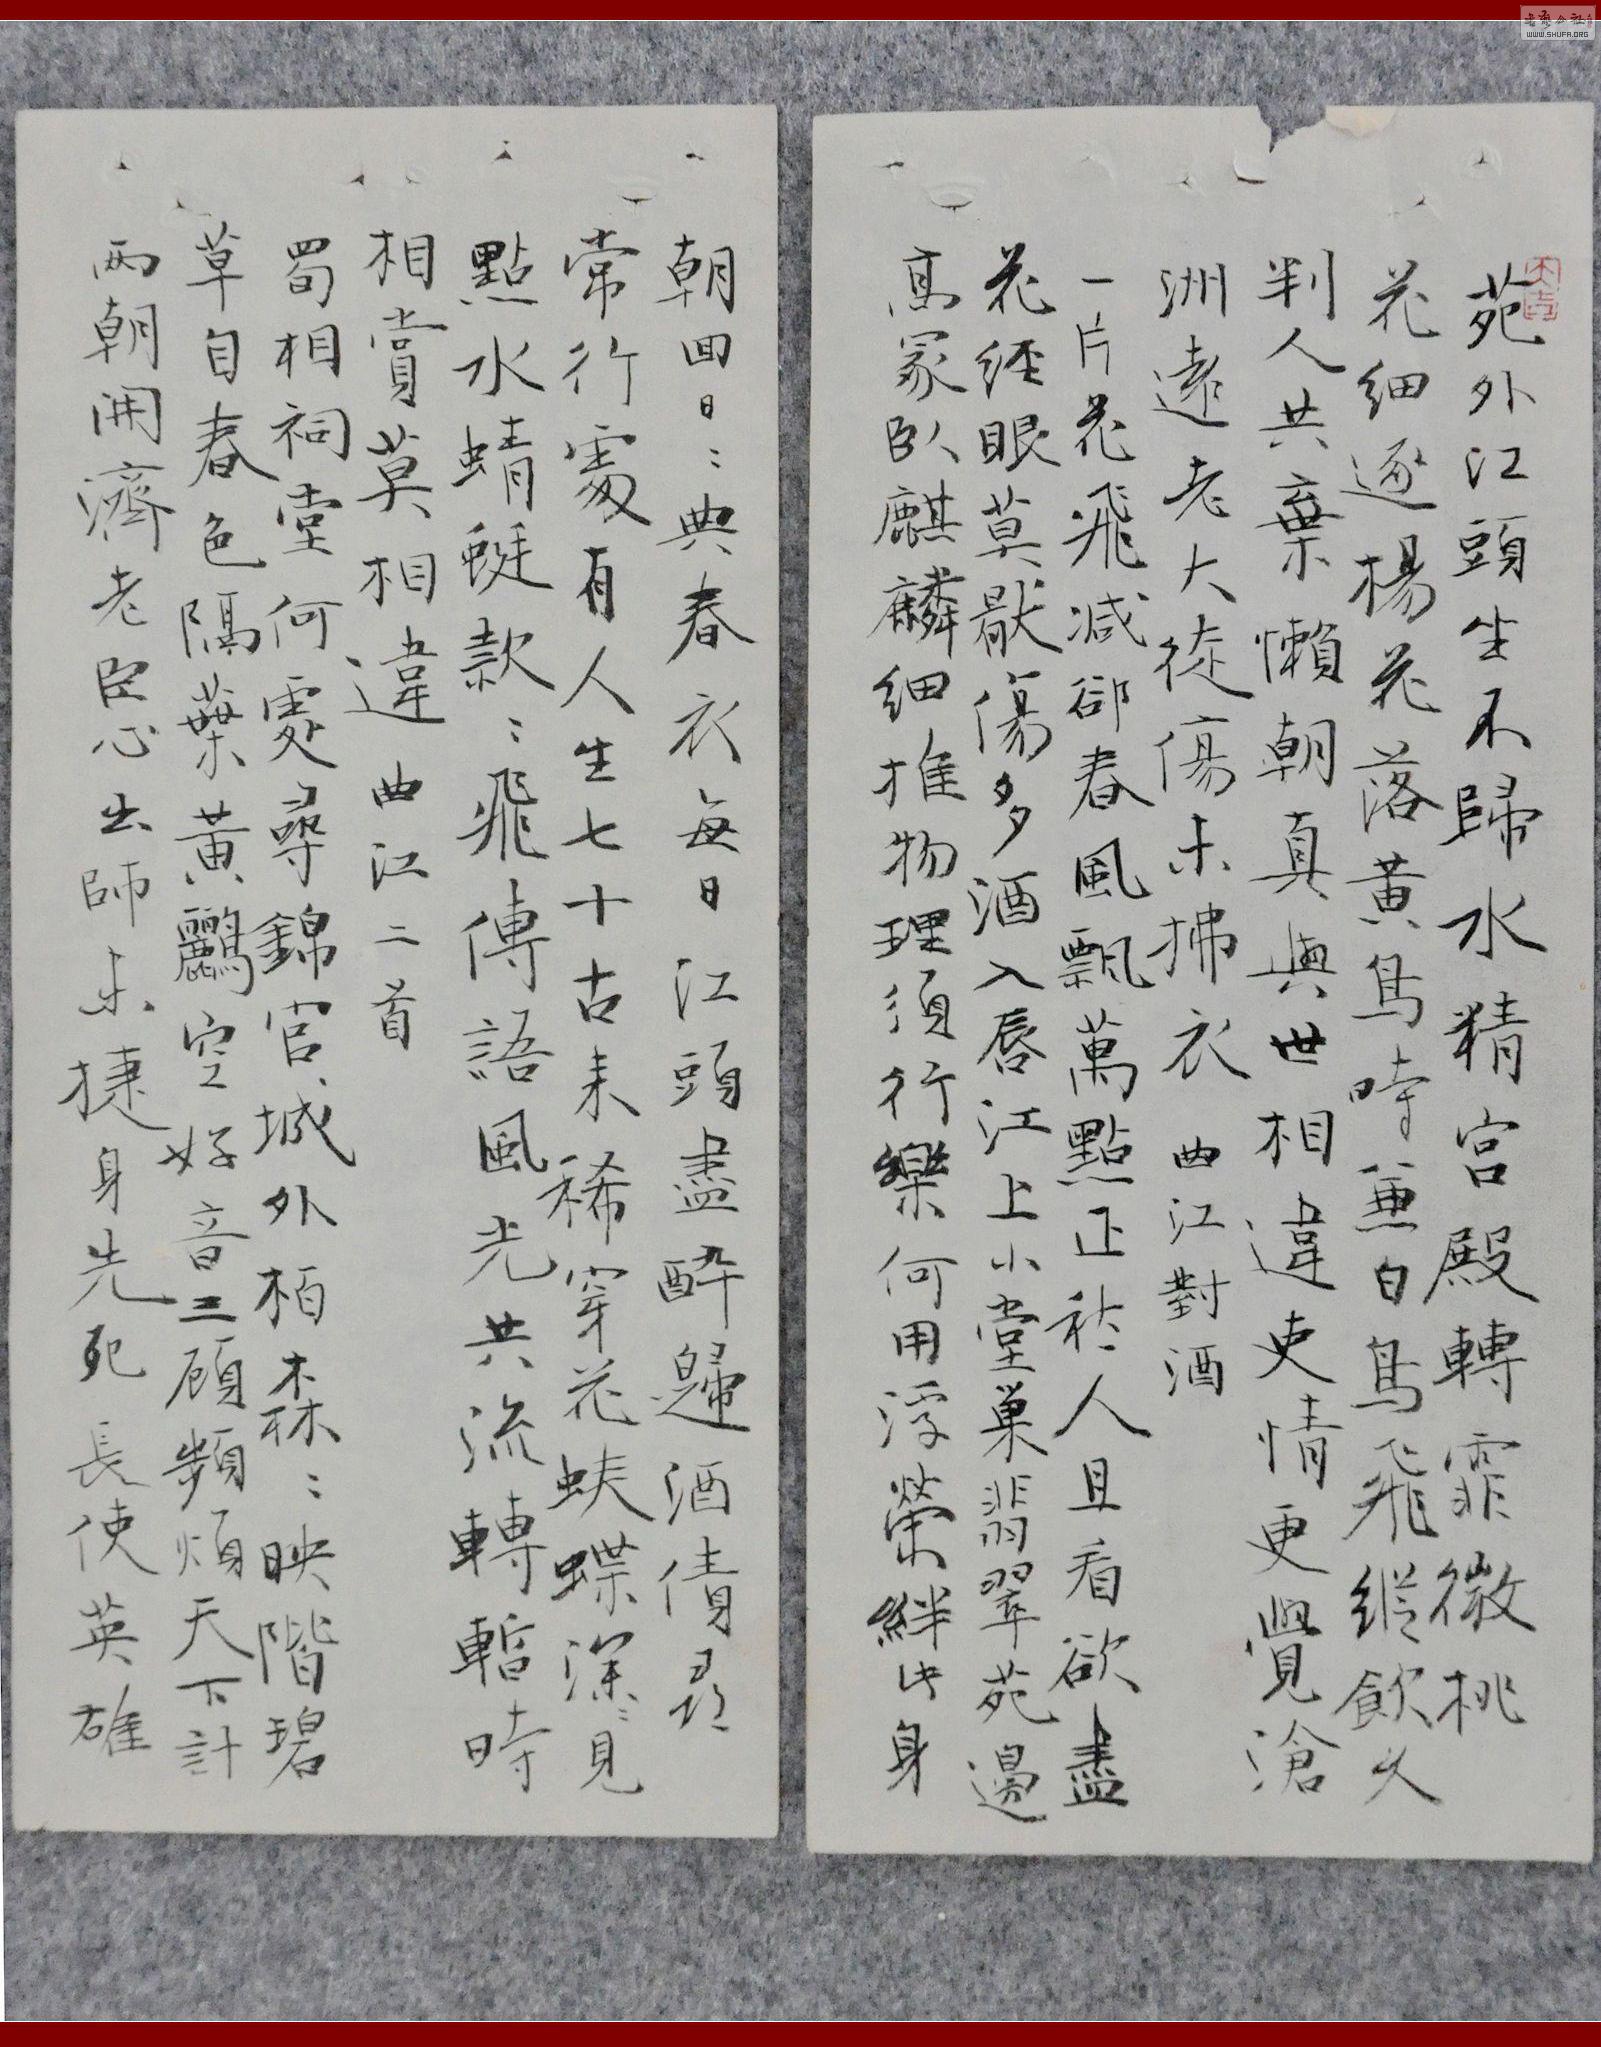 苑外江頭坐不歸水精宮殿轉霏微桃
花細逐楊花落黃鳥時兼白鳥飛縱飲久
判人共棄懶朝真與世相違吏情更覺滄
洲遠老大徒傷未拂衣 曲江對酒
一片花飛減卻春風飄萬點正愁人且看欲盡
花經眼莫厭傷多酒入唇江上小堂巢翡翠苑邊
高冢臥麒麟細推物理須行樂何用浮榮絆此身
朝回日〻典春衣每日江頭盡醉歸酒債尋
常行處有人生七十古來稀穿花蛺蝶深〻見
點水蜻蜓款〻飛傳語風光共流轉暫時
相賞莫相違 曲江二首
蜀相祠堂何處尋錦官城外柏森〻映階碧
草自春色隔葉黃鸝空好音三顧頻煩天下計
兩朝開濟老臣心出師未捷身先死長使英雄
WWW.SHUFA.ORG